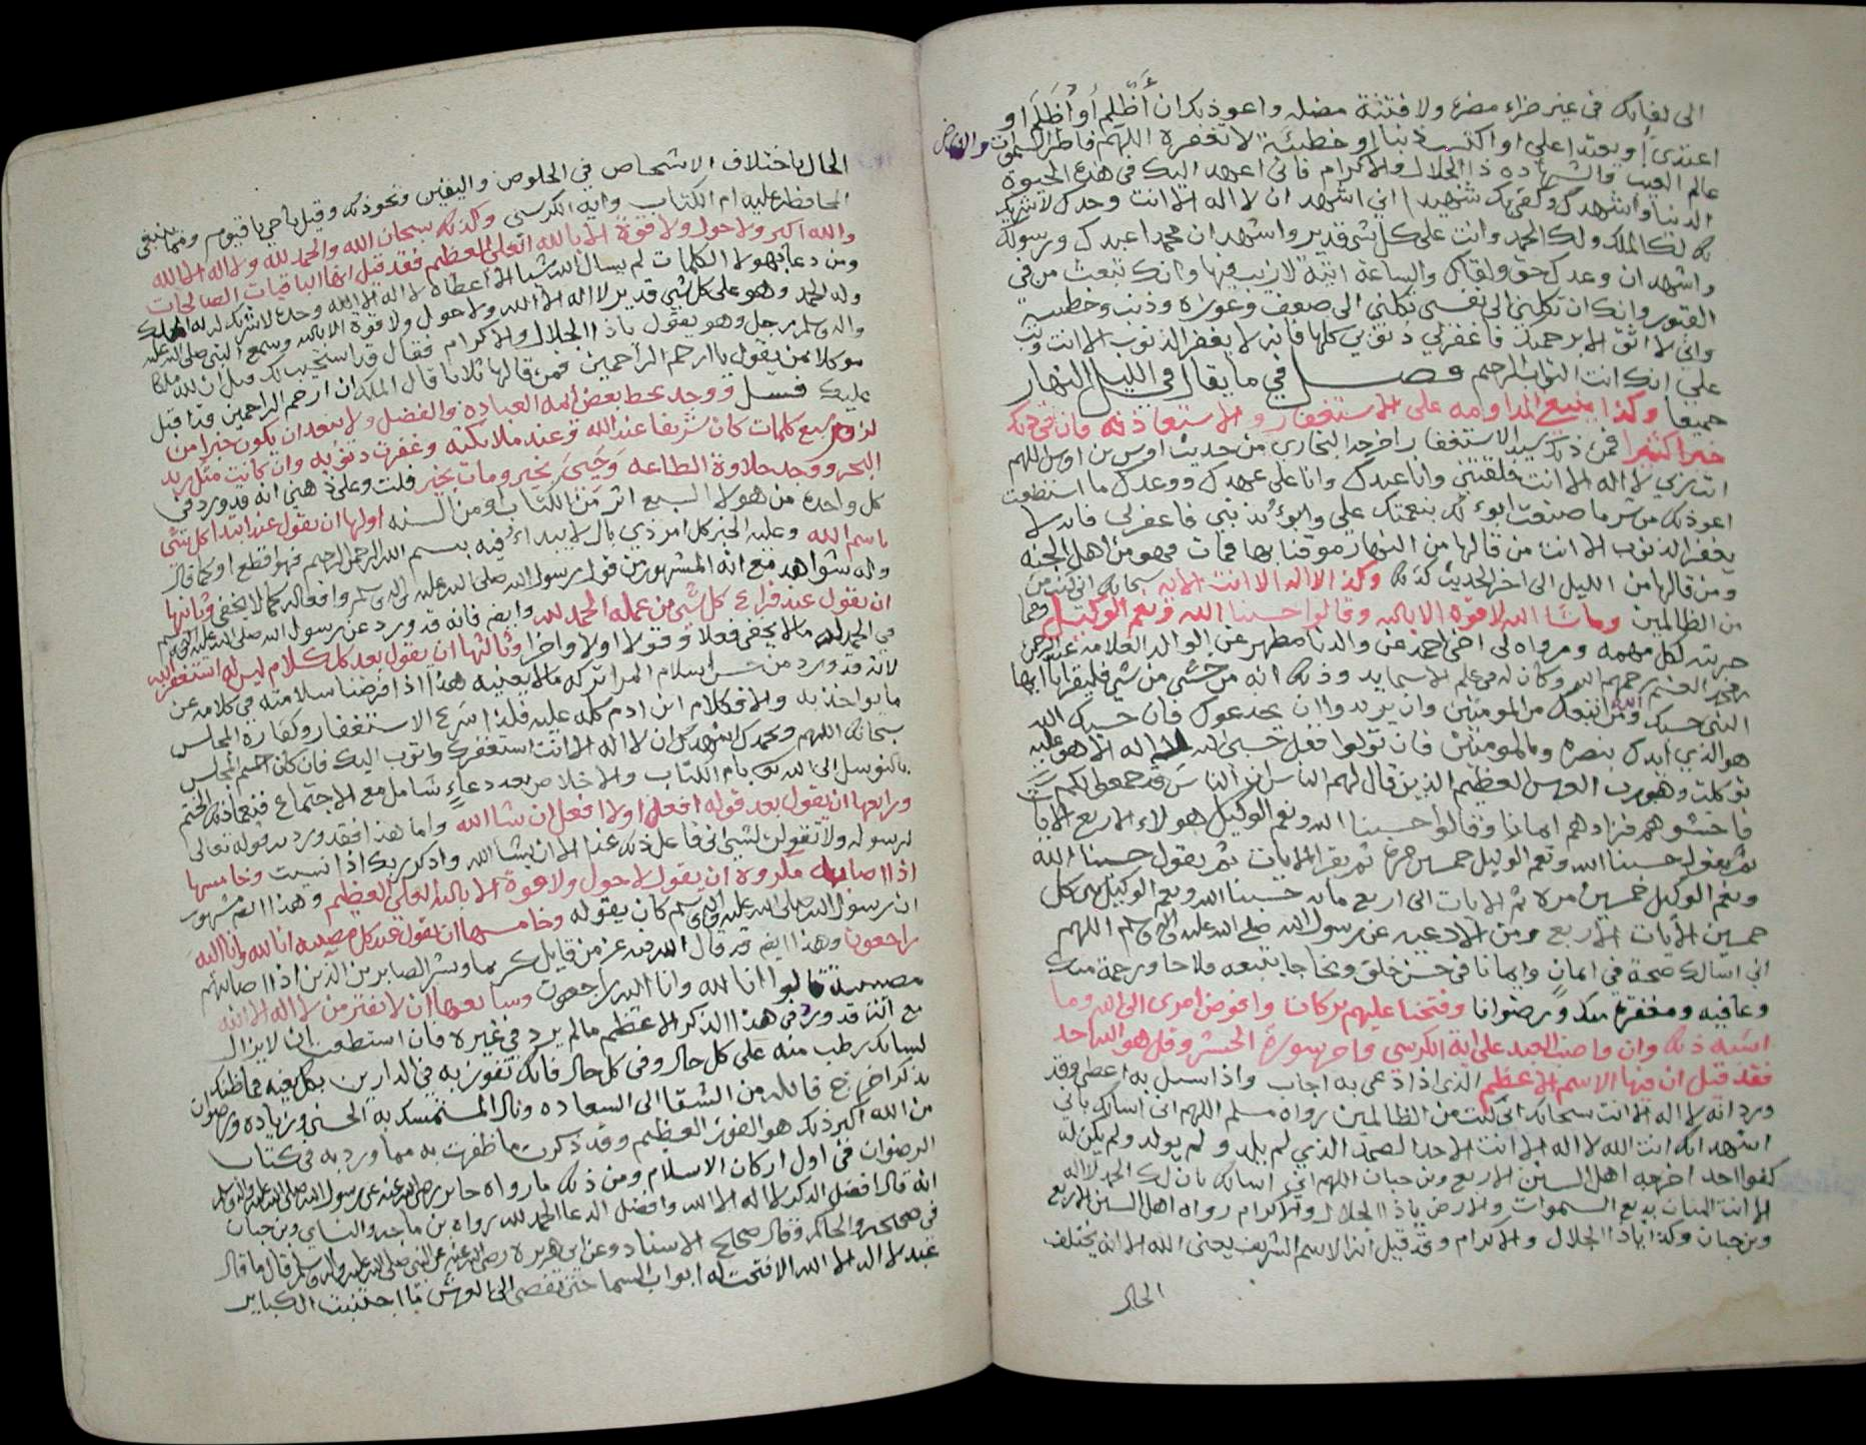 الى لقائك في غير ضراء مضرة ولا فتنة مضله واعوذ بك ان أَظلم أو أُظلَم او
اعتدي أو يعتدا علي او اكتسب ذنبا او خطيئة لا تغفره اللهم فاطر السموات والارض
عالم الغيب والشهاده ذا الجلال والاكرام فاني اعهد اليك في هذه الحيوة
الدنيا واشهدك وكفى بك شهيدا اني اشهد ان لا اله الا انت وحدك لا شريك
لك لك الملك ولك الحمد وانت على كل شي قدير واشهد ان محمدا عبدك ورسولك
واشهد ان وعدك حق ولقاك والساعة اتية لا ريب فيها وانك تبعث من في
القبور وانك ان تكلني الى نفسي تكلني الى ضعف وعورة وذنب وخطيه
واني لا اثق الا برحمتك فاغفر لي ذنوبي كلها فانه لا يغفر الذنوب الا انت وتب
علي انك انت التواب الرحيم فصل في ما يقال في الليل والنهار
جميعا وكذا ينبغي المداومه على الاستغفار والاستعاذه فان في ذلك
خيرا كثيرا فمن ذلك سيد الاستغفار اخرجه البخاري من حديث اوس بن اوس اللهم
انت ربي لا اله الا انت خلقتني وانا عبدك وانا على عهدك ووعدك ما استطعت
اعوذ بك من شر ما صنعت ابوء لك بنعمتك علي وابوء بذنبي فاغفر لي فانه لا
يغفر الذنوب الا انت من قالها من النهار موقنا بها فمات فهو من اهل الجنه
ومن قالها من الليل الى اخر الحديث كذلك وكذا لا اله الا انت الايه سبحانك اني كنت من
من الظالمين وما شا الله لا قوة الا بالله وقالوا حسبنا الله ونعم الوكيل ومما
جربته لكل مهمه ورواه لي اخي احمد عن والدنا مطهر عن الوالد العلامه عبد الرحمن
رحمهم الله وكان له في علم الاسما يد وذلك انه من خشي من شي فليقرا يا ايها
النبي حسبك الله ومن اتبعك من المومنين وان يريدوا ان يخدعوك فان حسبك الله
هو الذي ايدك بنصره وبالمومنين فان تولوا فقل حسبي الله لا اله الا هو عليه
توكلت وهو رب العرش العظيم الذين قال لهم الناس ان الناس قد جمعوا لكم
فاخشوهم فزادهم ايمانا وقالوا حسبنا الله ونعم الوكيل هولاء الاربع الايات
ثم يقول حسبنا الله ونعم الوكيل خمسين مرة ثم يقرا الايات ثم يقول حسبنا الله
ونعم الوكيل خمسين مره ثم الايات الى اربع مايه حسبنا الله ونعم الوكيل كل
خمسين الايات الاربع ومن الادعيه عن رسول الله صلى الله عليه واله وسلم اللهم
اني اسالك صحة في ايمان وايمانا في حسن خلق ونجاحا يتبعه فلاحا ورحمة منك
وعافيه ومغفرة منك ورضوانا وفتحنا عليهم بركات وافوض امري الى الله وما
اشبه ذلك وان واضب العبد على اية الكرسي واخر سورة الحشر وقل هو الله احد
فقد قيل ان فيها الاسم الاعظم الذي اذا دعي به اجاب واذا سيل به اعطى وقد
ورد انه لا اله الا انت سبحانك اني كنت من الظالمين رواه مسلم اللهم اني اسالك باني
اشهد انك انت الله لا اله الا انت الاحد الصمد الذي لم يلد ولم يولد ولم يكن له
كفوا احد اخرجه اهل السنن الاربع وبن حبان اللهم اني اسالك بان لك الحمد لا اله
الا انت المنان بديع السموات والارض يا ذا الجلال والاكرام رواه اهل السنن الاربع
وبن حبان وكذا يا ذا الجلال والاكرام وقد قيل ان الاسم الشريف يعني الله الا انه يختلف
الحال
الحال باختلاف الاشخاص في الخلوص واليقين ونحو ذلك وقيل يا حي يا قيوم ومما ينبغي
المحافظه عليه ام الكتاب واية الكرسي وكذلك سبحان الله والحمد لله ولا اله الا الله
والله اكبر ولا حول ولا قوة الا بالله العلي العظيم فقد قيل انها الباقيات الصالحات
ومن دعا بهولا الكلمات لم يسال الله شيا الا اعطاه لا اله الا الله وحده لا شريك له له الملك
وله الحمد وهو على كل شي قدير لا اله الا الله ولا حول ولا قوة الا بالله وسمع النبي صلى الله عليه
واله وسلم رجل وهو يقول يا ذا الجلال والاكرام فقال قد استجيب لك وقيل ان لله ملكا
موكلا بمن يقول يا ارحم الراحمين فمن قالها ثلاثا قال الملك ان ارحم الراحمين قد اقبل
عليك فسل ووجد بخط بعض ائمه العباده والفضل ولا يبعد ان يكون خبرا من
لزم سبع كلمات كان شريفا عند الله وعند ملائكته وغفرت ذنوبه وان كانت مثل زبد
البحر ووجد حلاوة الطاعه وحيي بخير ومات بخير قلت وعلى ذهني انه قد ورد في
كل واحدة من هولا السبع اثر من الكتاب ومن السنه اولها ان يقول عند ابتدا كل شي
باسم الله وعليه الخبر كل امر ذي بال لا يبداء فيه ببسم الله الرحمن الرحيم فهو اقطع او كما قال
وله شواهد مع انه المشهور من قول رسول الله صلى الله عليه واله وسلم وافعاله كما لا يخفى وثانيها
ان يقول عند فراغ كل شي من عمله الحمد لله وايضا فانه قد ورد عن رسول الله صلى الله عليه واله وسلم
في الحمد لله ما لا يخفى فعلا وقولا اولا واخرا وثالثها ان يقول بعد كل كلام ليس لله استغفر الله
لانه قد ورد من حسن اسلام المرا تركه ما لا يعنيه هذا اذا فرضنا سلامته في كلامه عن
ما يواخذ به والا فكلام ابن ادم كله عليه فلذا اسرع الاستغفار وكفارة المجلس
سبحانك اللهم وبحمدك اشهد ان لا اله الا انت استغفرك واتوب اليك فان كان ختم المجلس
بالتوسل الى الله بام الكتاب والاخلاص بعد دعاءٍ شامل مع الاجتماع فنعما ذلك الختم
ورابعها ان يقول بعد قوله افعل او لا افعل ان شا الله واما هذا فقد ورد قوله تعالى
لرسوله ولا تقولن لشي اني فاعل ذلك غدا الا ان يشا الله واذكر ربك اذا نسيت وخامسها
اذا اصابه مكروه ان يقول لا حول ولا قوة الا بالله العلي العظيم وهذا ايضا مشهور
ان رسول الله صلى الله عليه واله وسلم كان يقوله وخامسها ان يقول عند كل مصيبه انا لله وانا اليه
راجعون وهذا ايضا قد قال الله فيه عز من قايل كريما وبشر الصابرين الذين اذا اصابتهم
مصيبة قالوا انا لله وانا اليه راجعون وسابعها ان لا تفتر من لا اله الا الله
مع انه قد ورد في هذا الذكر الاعظم ما لم يرد في غيره فان استطعت ان لا يزال
لسانك رطب منه على كل حال وفي كل حال فانك تفوز به في الدارين
من الشقا الى السعاده ونال المستمسك به الحسنى وزياده ورضوان
من الله اكبر ذلك هو الفوز العظيم وقد ذكرت ما ظفرت به مما ورد به في كتاب
الرضوان في اول اركان الاسلام ومن ذلك ما رواه جابر رضي الله عنه عن رسول الله صلى الله عليه واله وسلم
انه قال افضل الذكر لا اله الا الله وافضل الدعا الحمد لله رواه بن ماجه والنساي وبن حبان
في صحيحه والحاكم وقال صحيح الاسناد وعن ابي هريرة رضي الله عنه عن النبي صلى الله عليه واله وسلم قال ما قال
عبد لا اله الا الله الا فتحت له ابواب السما حتى تفضي الى العرش ما اجتنبت الكباير